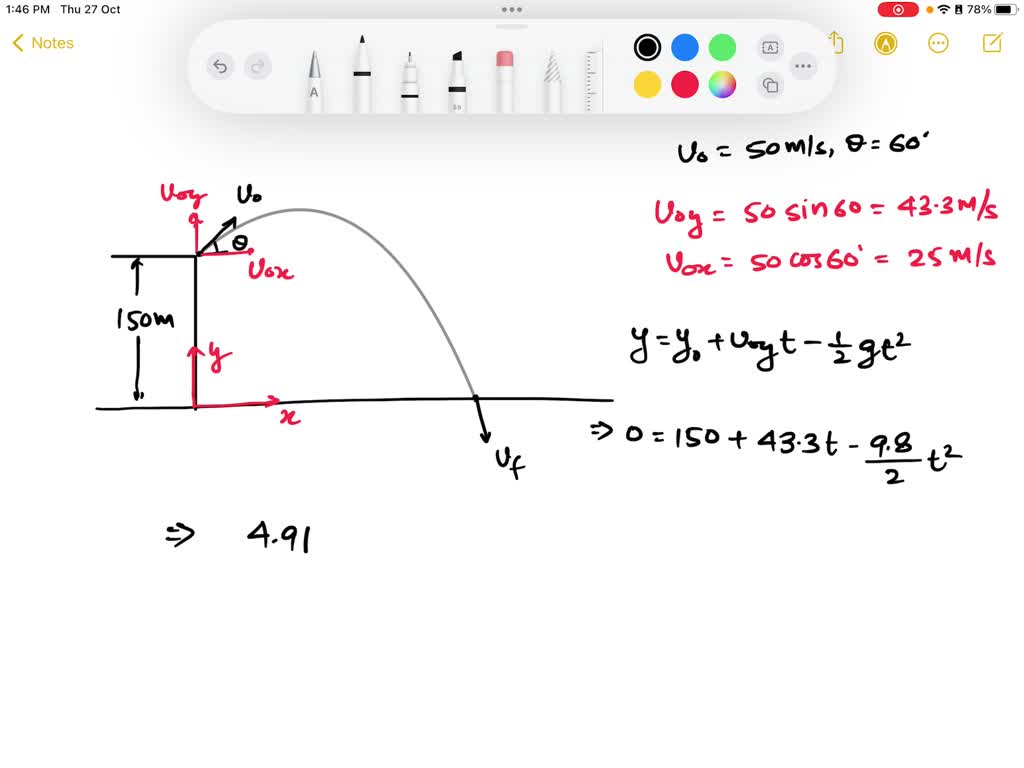 1:46 PM Thu 27 Oct
78%
Notes
A
59
A
A
v₀ = 50 m/s, θ = 60°
v₀y = 50 sin60 = 43.3 m/s
v₀x = 50 cos60° = 25 m/s
v₀y
v₀
θ
v₀x
150m
y
x
v_f
y = y₀ + v₀y t - 1/2 gt²
⇒ 0 = 150 + 43.3t - 9.8/2 t²
⇒ 4.91